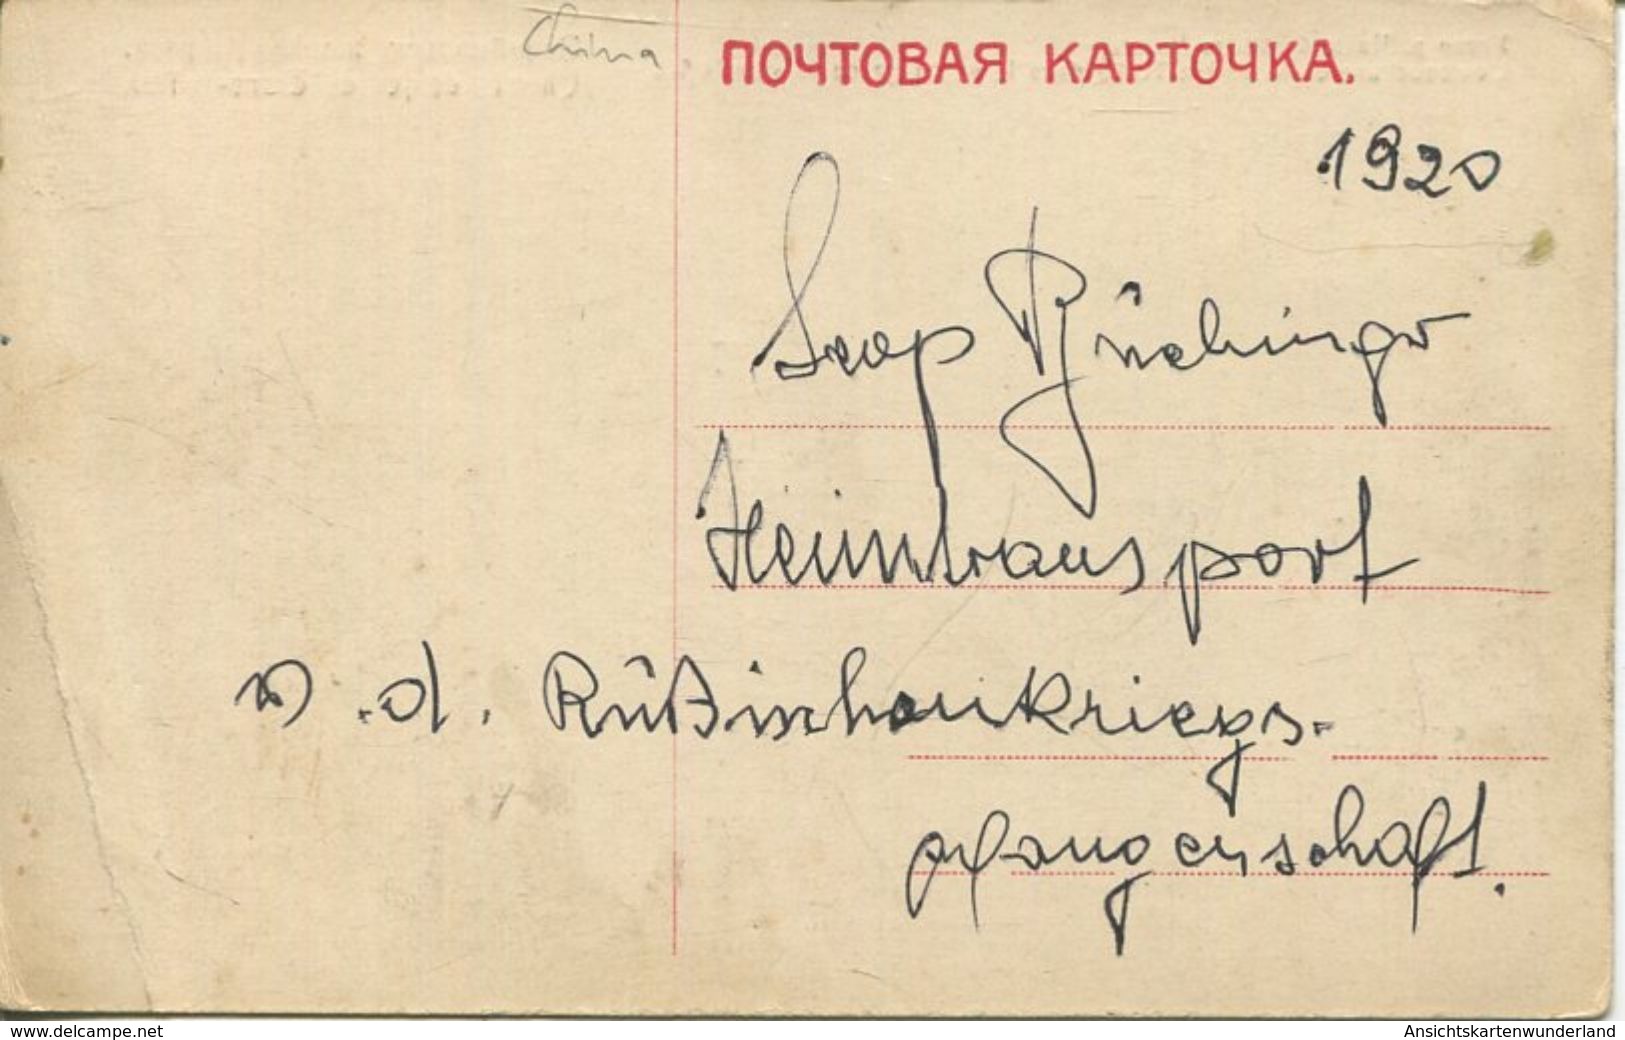 China
ПОЧТОВАЯ КАРТОЧКА.
1920
Heimtransport
v. d. Rußischenkriegs-
gfangenschaft.
www.delcampe.net
Ansichtskartenwunderland